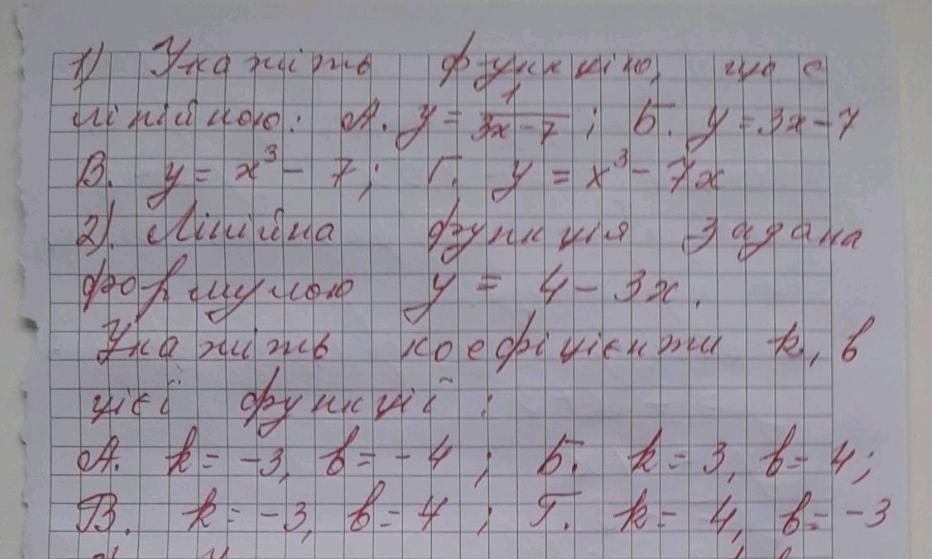 1) Укажіть функцію, що є
лінійною: А. y = 1/(3x-7); Б. y = 3x-7
В. y = x³ - 7; Г. y = x³ - 7x
2). Лінійна функція задана
формулою y = 4 - 3x.
Укажіть коефіцієнти k, b
цієї функції:
А. k = -3, b = -4; Б. k = 3, b = 4;
В. k = -3, b = 4; Г. k = 4, b = -3